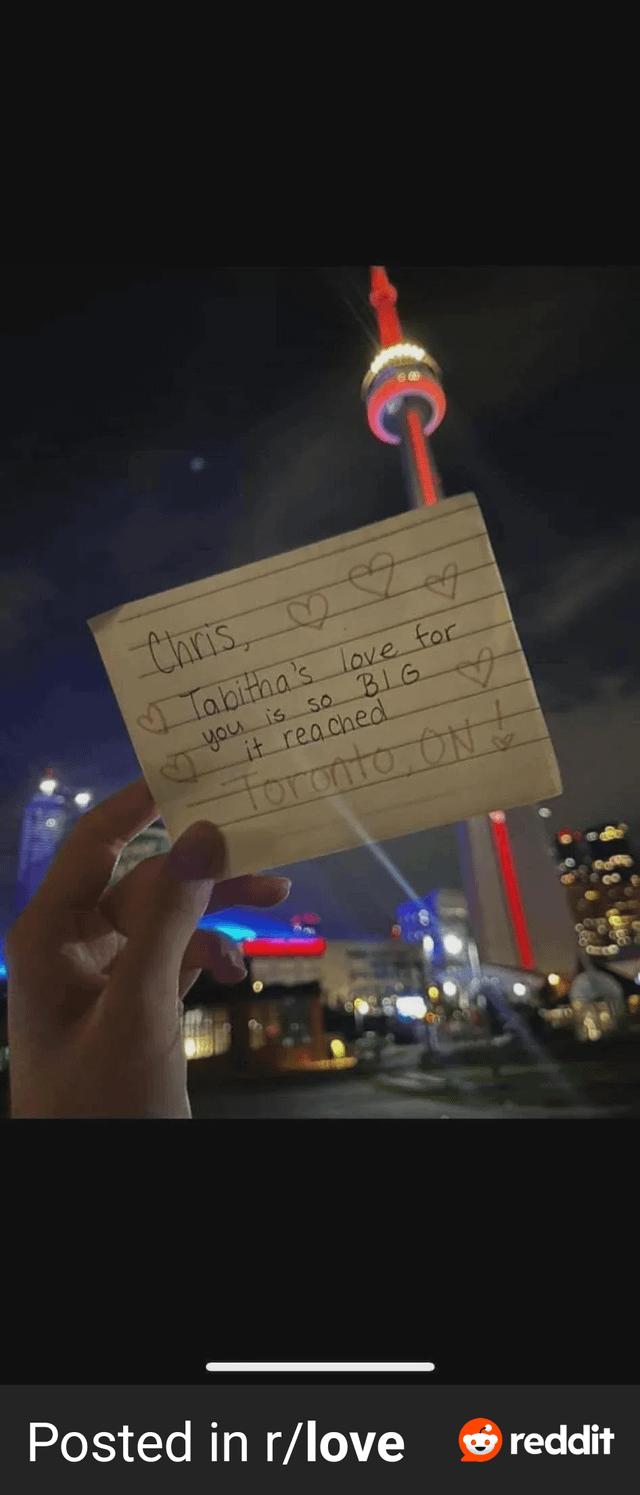 Chris,
Tabitha's love for
you is so BIG
it reached
Toronto, ON!
Posted in r/love
reddit